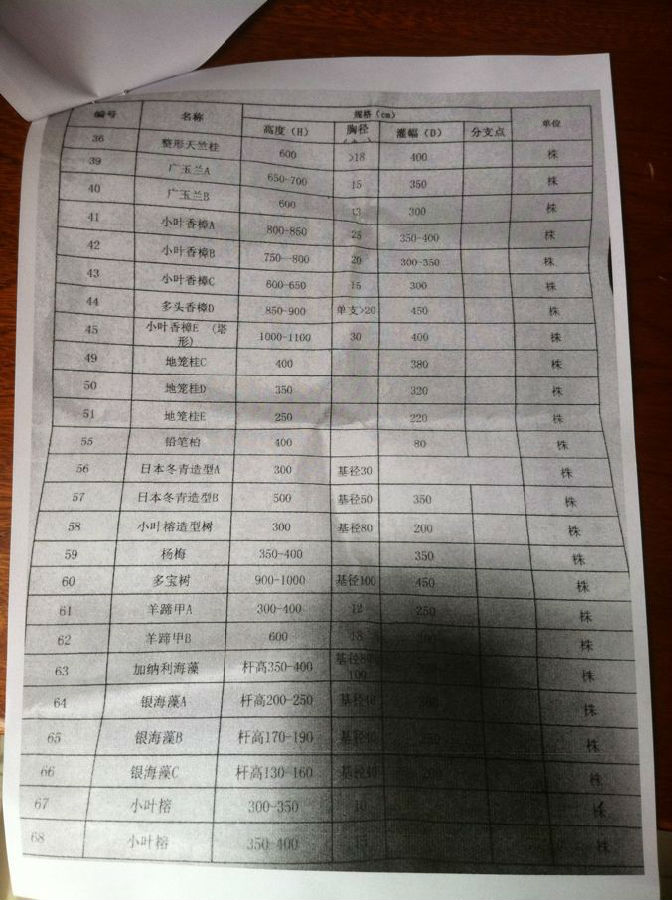 编号 名称 规格（cm） 单位
高度（H） 胸径 灌幅（D） 分支点
36 整形天竺桂 600 >18 400 株
39 广玉兰A 650-700 15 350 株
40 广玉兰B 600 13 300 株
41 小叶香樟A 800-850 25 350-400 株
42 小叶香樟B 750--800 20 300-350 株
43 小叶香樟C 600-650 15 300 株
44 多头香樟D 850-900 单支>20 450 株
45 小叶香樟E （塔形） 1000-1100 30 400 株
49 地笼桂C 400 380 株
50 地笼桂D 350 320 株
51 地笼桂E 250 220 株
55 铅笔柏 400 80 株
56 日本冬青造型A 300 基径30 株
57 日本冬青造型B 500 基径50 350 株
58 小叶榕造型树 300 基径80 200 株
59 杨梅 350-400 350 株
60 多宝树 900-1000 基径100 450 株
61 羊蹄甲A 300-400 12 250 株
62 羊蹄甲B 600 18 株
63 加纳利海藻 杆高350-400 株
64 银海藻A 杆高200-250 株
65 银海藻B 杆高170-190 株
66 银海藻C 杆高130-160 株
67 小叶榕 300-350 10 株
68 小叶榕 350-400 株